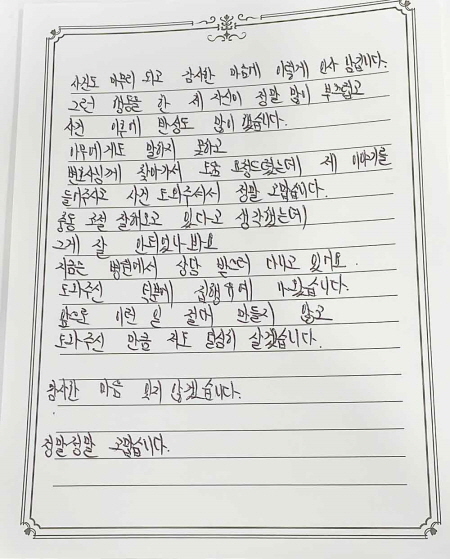 사건도 마무리 되고 감사한 마음에 이렇게 인사 남깁니다.
그런 행동을 한 제 자신이 정말 많이 부끄럽고
사건 이후에 반성도 많이 했습니다.
아무에게도 말하지 못하고
변호사님께 찾아가서 도움 요청드렸는데 제 이야기를
들어주시고 사건 도와주셔서 정말 고맙습니다.
충동 조절 잘해오고 있다고 생각했는데
그게 잘 안되었나봐요
지금은 병원에서 상담 받으러 다니고 있어요.
도와주신 덕분에 집행유예 나왔습니다.
앞으로 이런 일 절대 만들지 않고
도와주신 만큼 저도 열심히 살겠습니다.
감사한 마음 잊지 않겠습니다.
정말정말 고맙습니다.